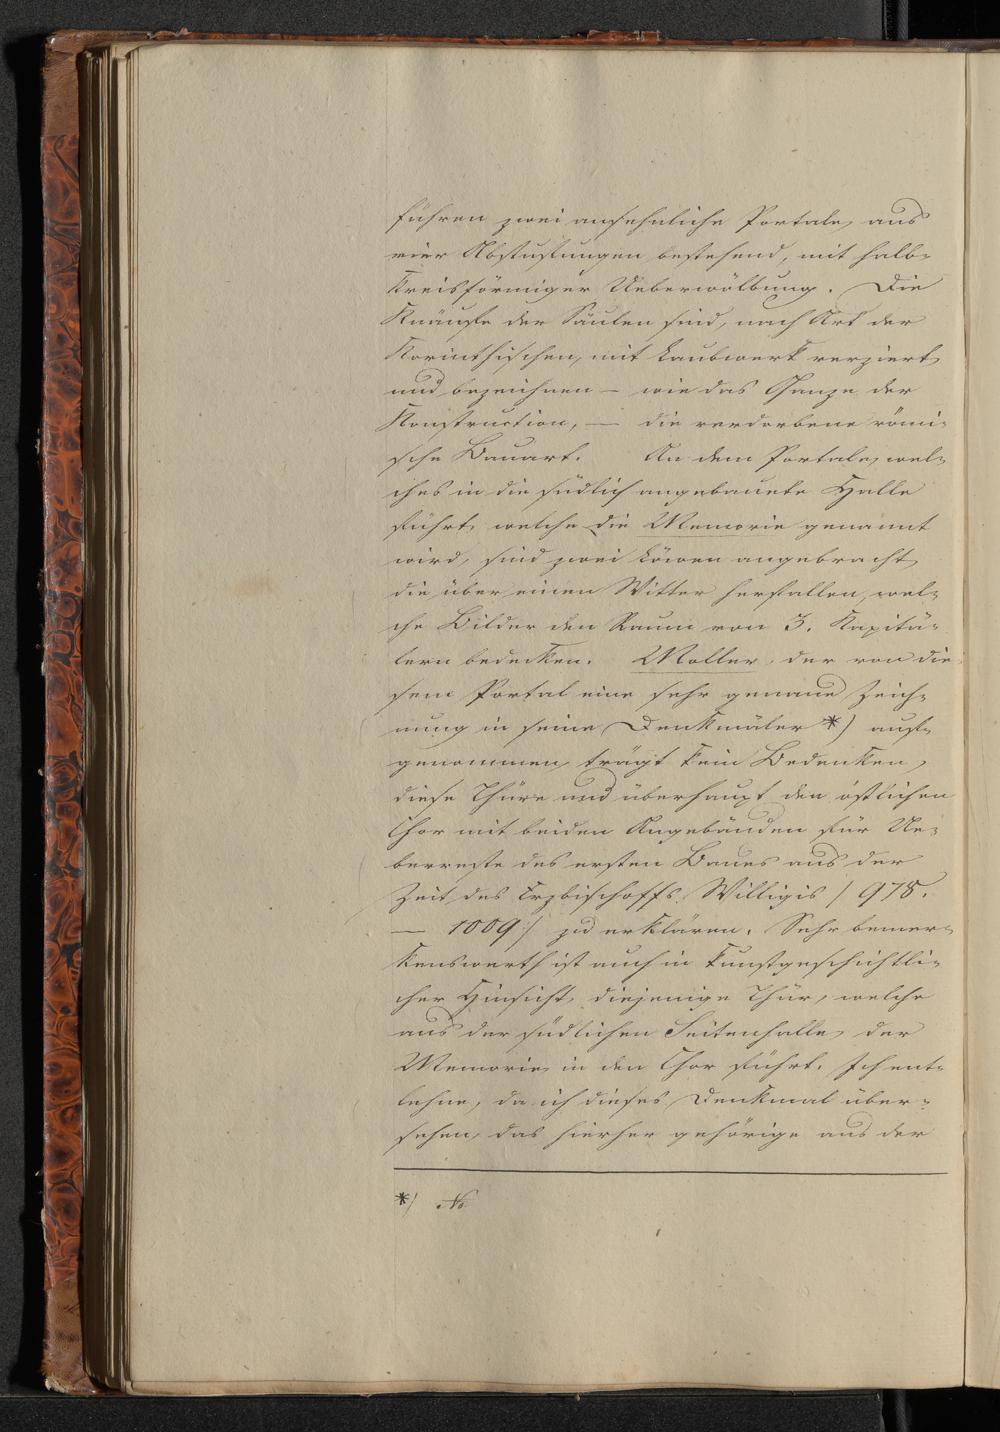 führen zwei ansehnliche Portale, aus
vier Abstufungen bestehend, mit halb-
kreisförmiger Ueberwölbung. Die
Knäufe der Säulen sind, nach Art der
Korinthischen, mit Laubwerk verziert,
und bezeichnen – wie das Ganze der
Konstruction, – die verdorbene römi-
sche Bauart. An dem Portale, wel-
ches in die südlich angebauete Halle
führt, welche die Memorie genannt
wird, sind zwei Löwen angebracht,
die über einen Widder herfallen, wel-
che Bilder den Raum von 3. Kapitä-
lern bedecken. Moller, der von die-
sem Portal eine sehr genaue Zeich-
nung in seine Denkmäler *) auf-
genommen, trägt kein Bedenken,
diese Thüre und überhaupt den östlichen
Chor mit beiden Angebäuden für Ue-
berreste des ersten Baues aus der
Zeit des Erzbischoffs Willigis /: 978.
— 1009 :/ zu erklären. Sehr bemer-
kenswerth ist auch in kunstgeschichtli-
cher Hinsicht, diejenige Thür, welche
aus der südlichen Seitenhalle, der
Memorie, in den Chor führt. Ich ent-
lehne, da ich dieses Denkmal über-
sehen, das hierher gehörige aus der
*) No